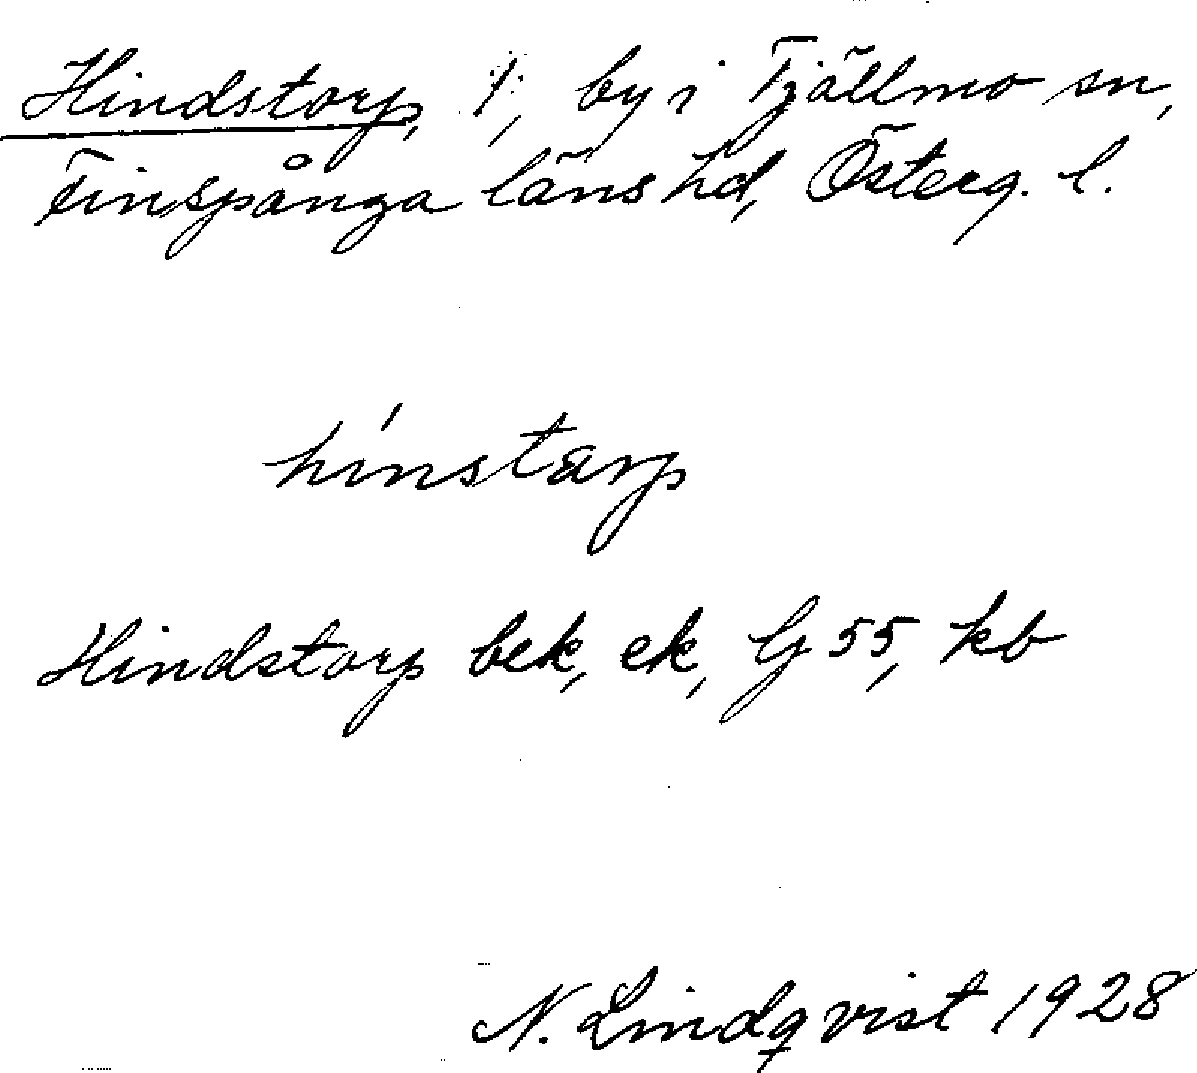 Hindstorp, 1, by i Tjällmo sn,
Finspånga läns hd, Österg. l.
hínstarp
Hindstorp bek, ek, G 55, kb
N. Lindqvist 1928